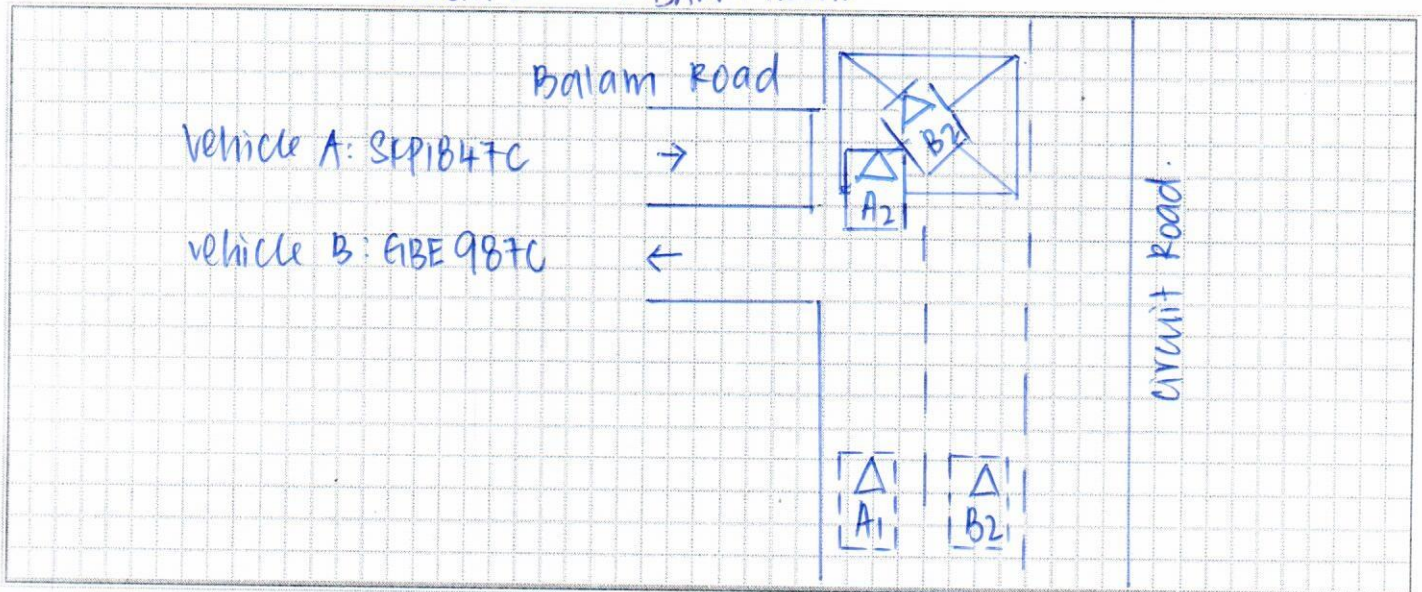 Balam Road
Vehicle A: SKP1847C
→
B2
A2
vehicle B: GBE 987C
←
Circuit Road.
A1
B2